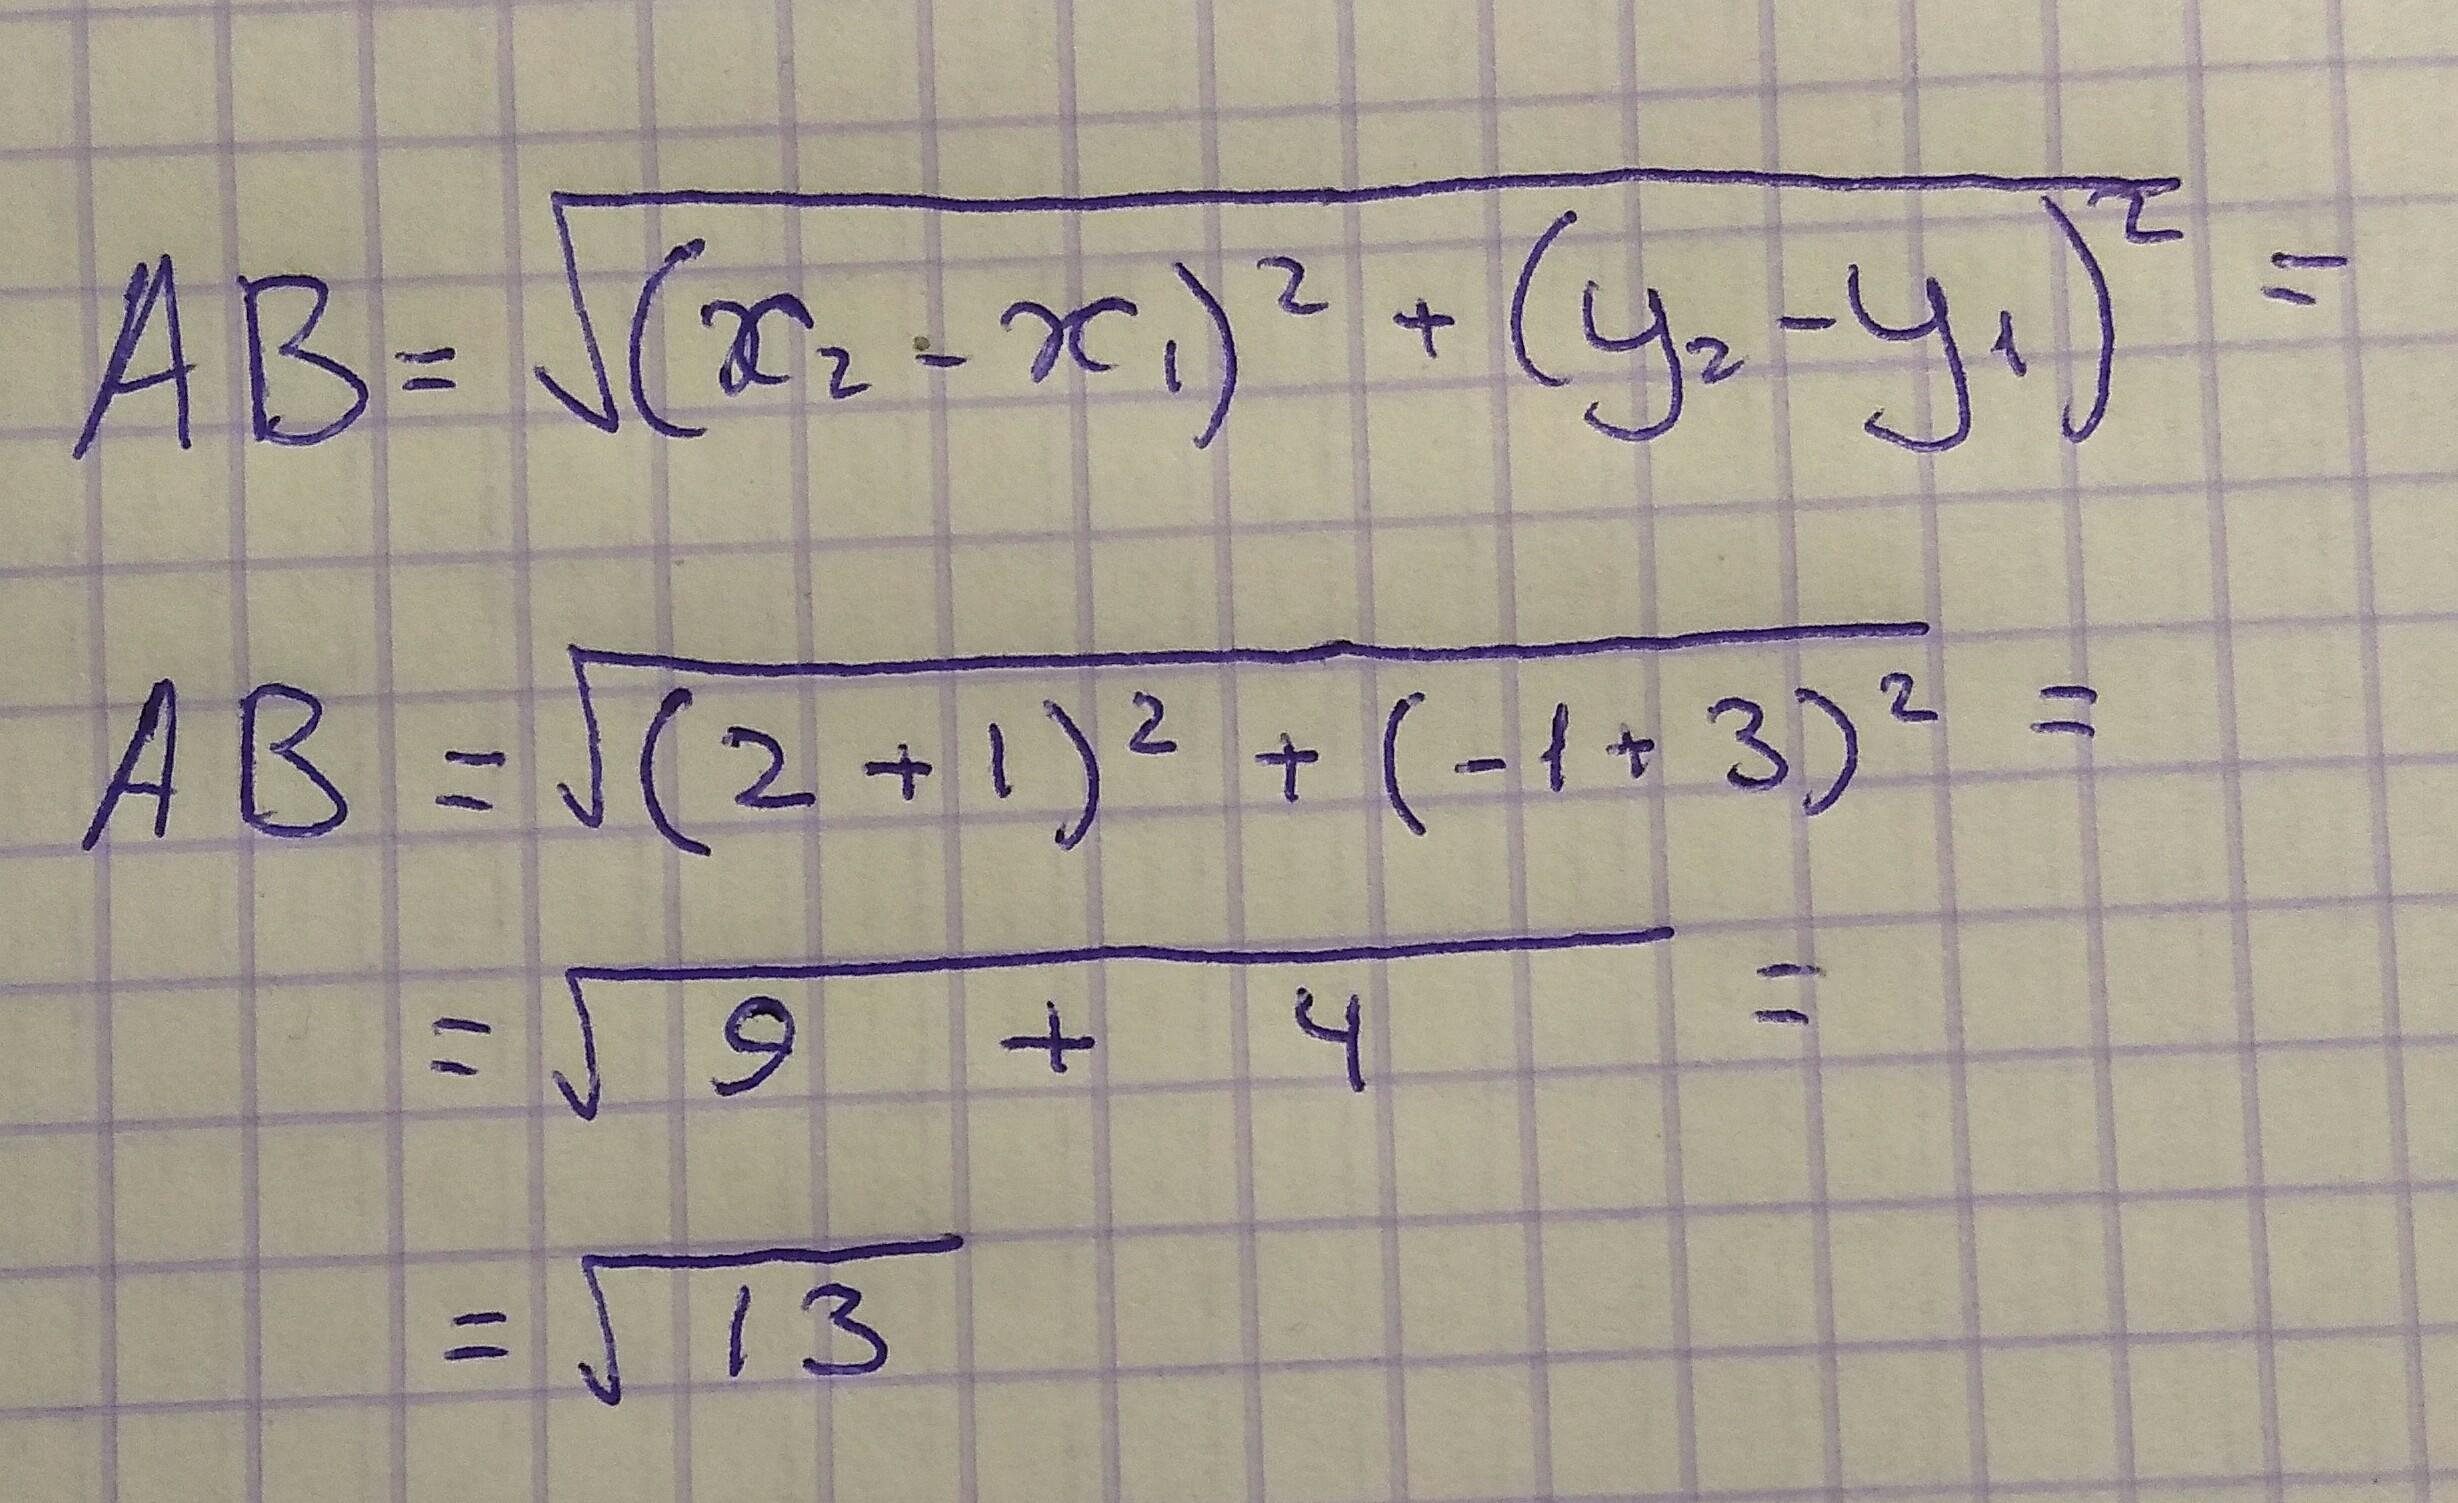 AB = √((x₂ - x₁)² + (y₂ - y₁)²) =
AB = √((2 + 1)² + (-1 + 3)²) =
= √(9 + 4) =
= √13